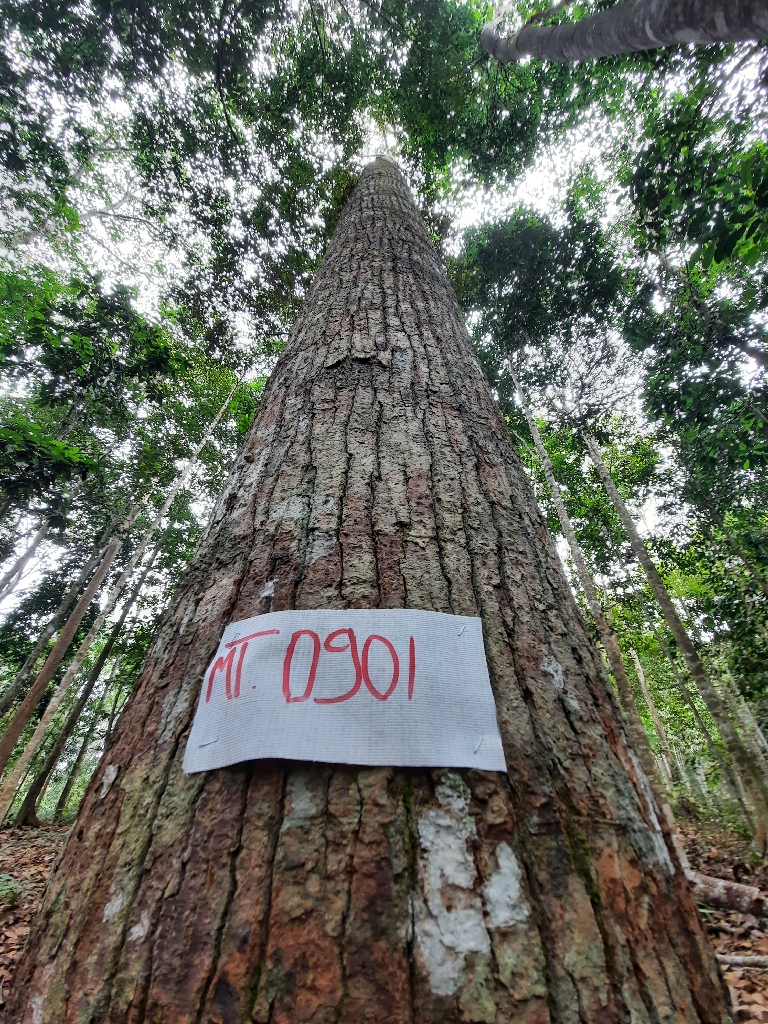 MT. 0901